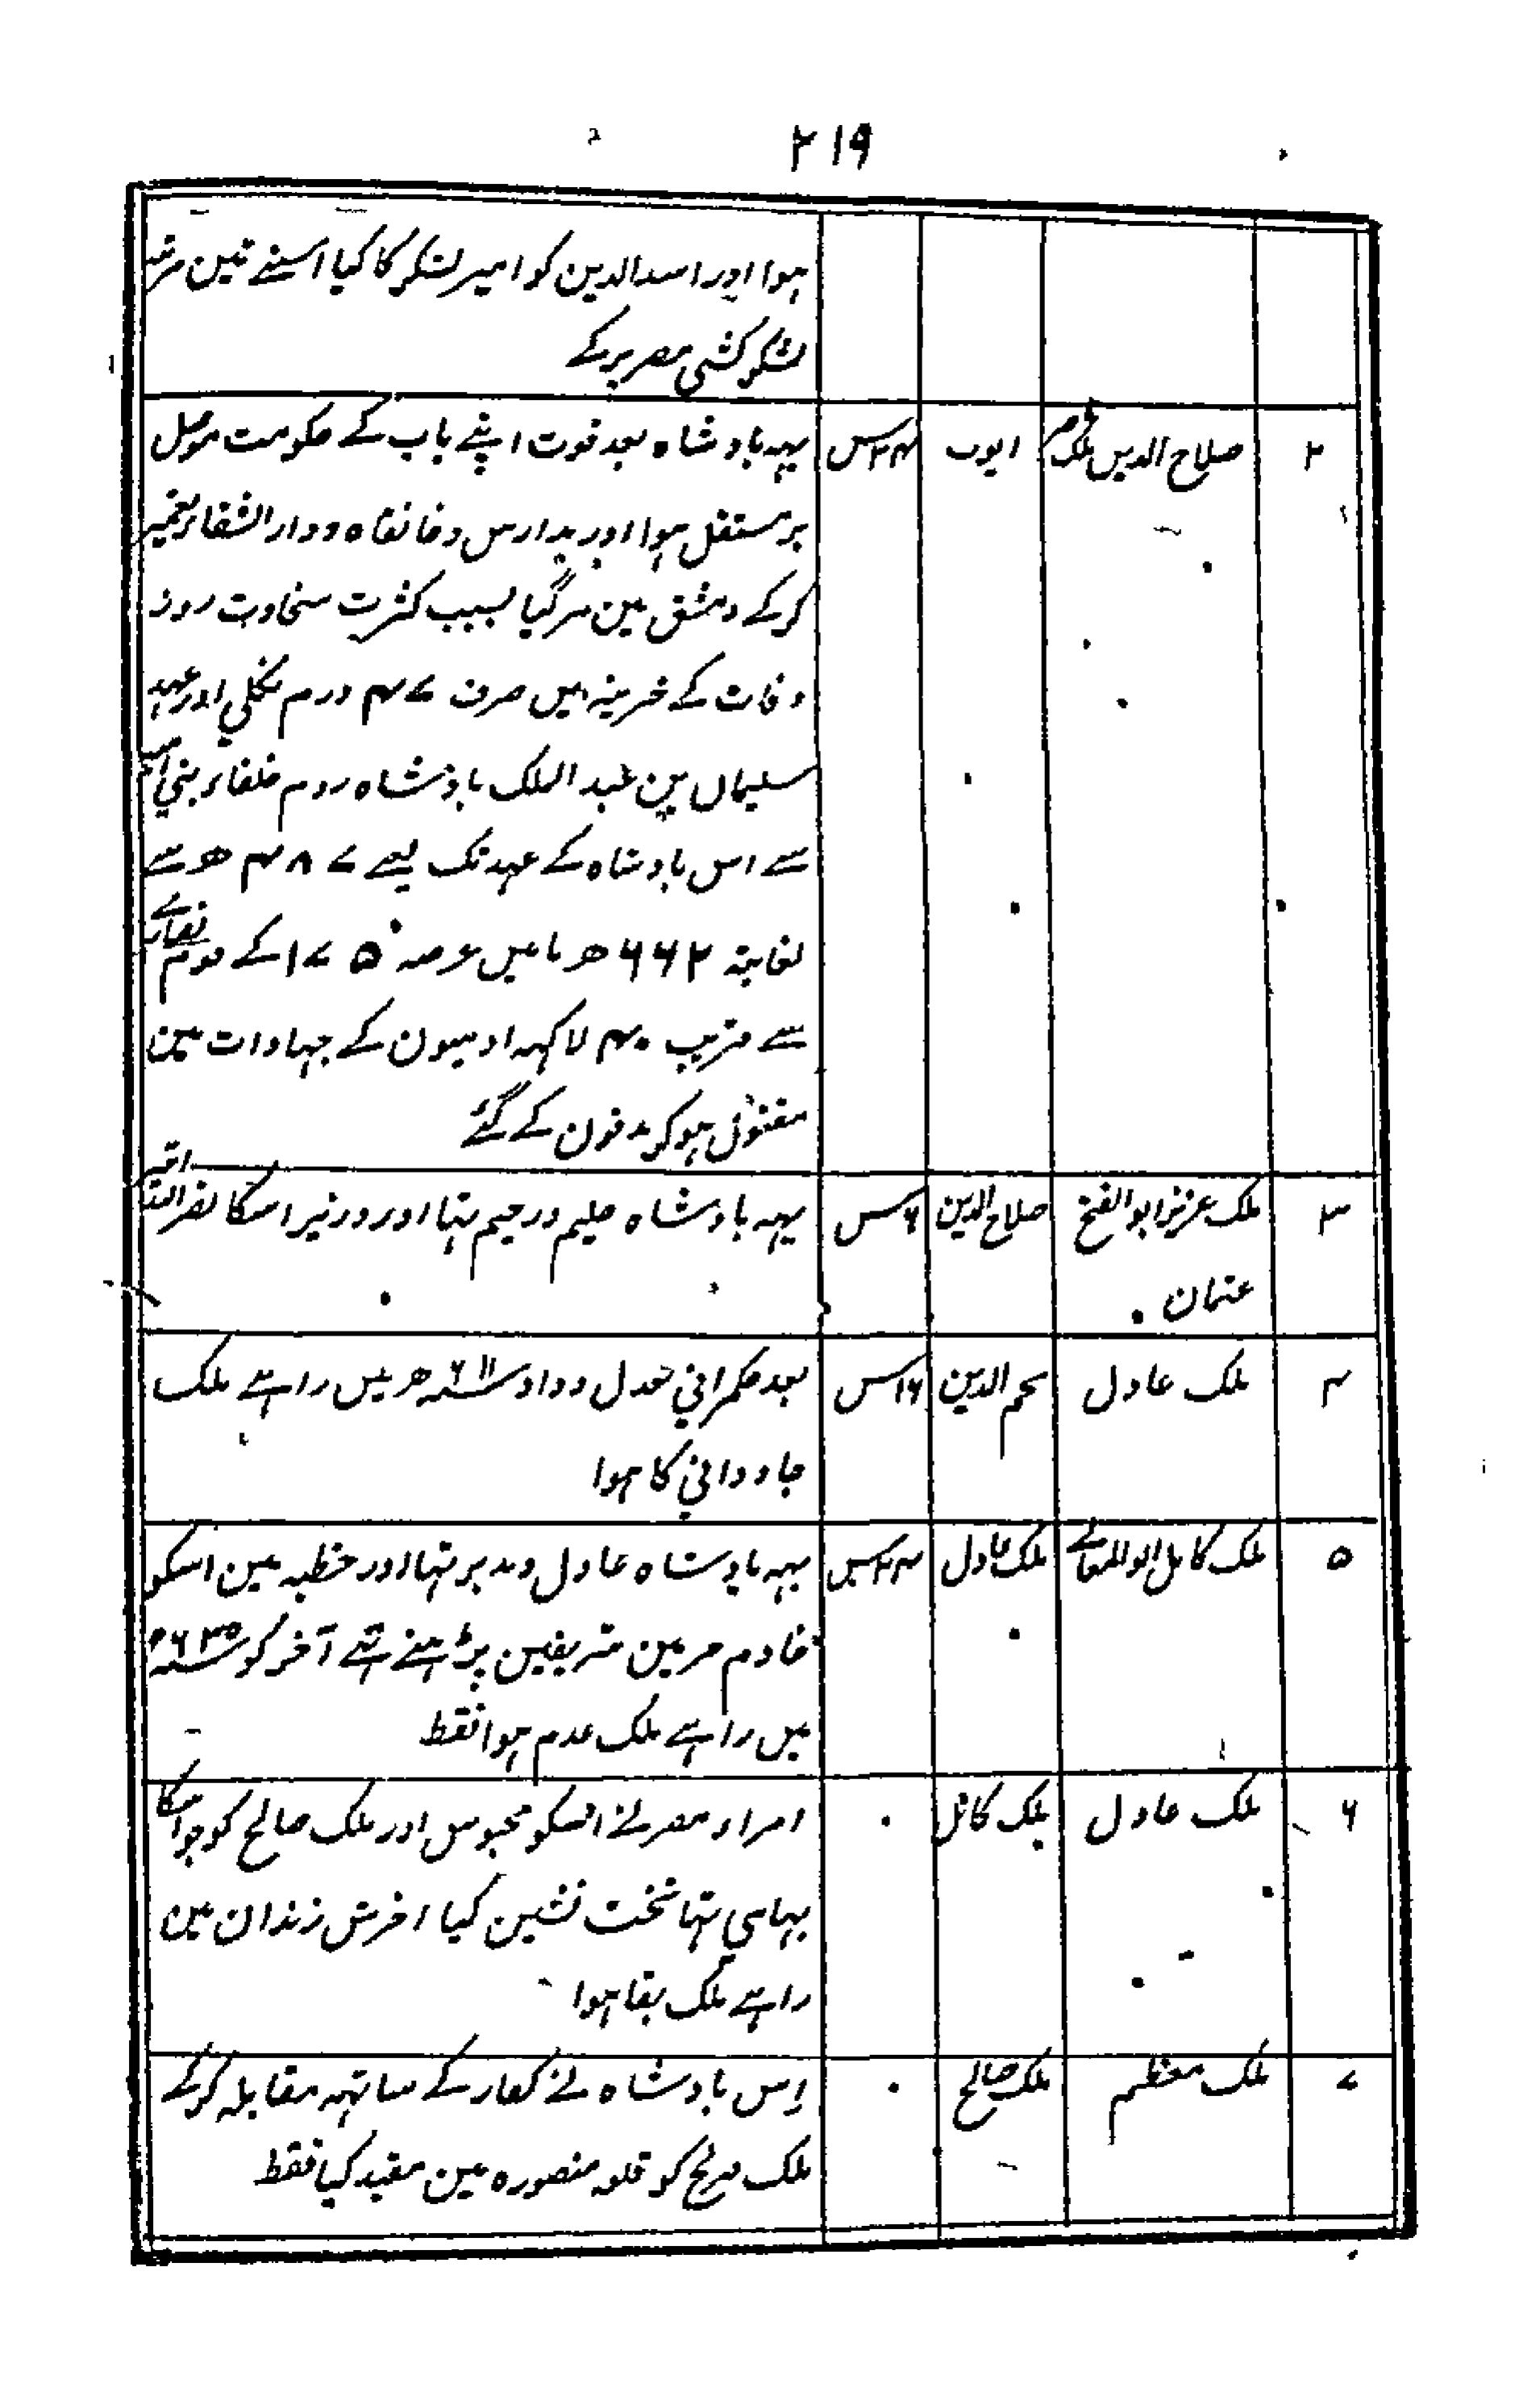 ۲۱۹
ہوا اور اسد الدین کو امیر لشکر کا کیا اسنے تین مرتبہ
لشکر کشی مصر پر کے
۲ صلاح الدین ملک ایوب ۲۴س یہہ بادشاہ بعد فوت اپنے باپ کے حکومت موصل
پر مستقل ہوا اور مدارس و خانقاہ و دار الشفا تعمیر
کر کے دمشق مین مر گیا بسبب کثرت سخاوت روز
وفات کے خزینہ میں صرف ۴۷ درم نکلی اور عہد
سلیمان بن عبد الملک بادشاہ دوم خلفاء بنی امیہ
سے اس بادشاہ کے عہد تک یعنے ھ سے
لغایتہ ۶۶۲ ھ مابین عرصہ کے قوم نصارے
سے قریب ۴۰ لاکہہ ادمیون کے جہادات مین
مقتول ہو کر مدفون کے گئے
۳ ملک عزیز ابو الفتح صلاح الدین ۶س یہہ بادشاہ حلیم و رحیم تہا اور وزیر اسکا نصر اللہ
عثمان
۴ ملک عادل نجم الدین ۱۶س بعد حکمرانی عدل و داد سنہ ۶۱۱ ھ میں راہے ملک
جاودانی کا ہوا
۵ ملک کامل ابو المعالے ملک عادل س یہہ بادشاہ عادل و مدبر تہا اور خطبہ مین اسکو
خادم حرمین شریفین پڑاہتے تہے آخر کو سنہ ۶۳۵ھ
میں راہے ملک عدم ہوا فقط
۶ ملک عادل ملک کامل ۰ امراء مصر نے اسکو محبوس اور ملک صالح کو جو اسکا
بہای تہا تخت نشین کیا اخرش زندان مین
راہے ملک بقا ہوا
۷ ملک معظم ملک صالح ۰ اِس بادشاہ نے کفار کے ساتہہ مقابلہ کر کے
ملک کو قلعہ منصورہ مین مقید کیا فقط